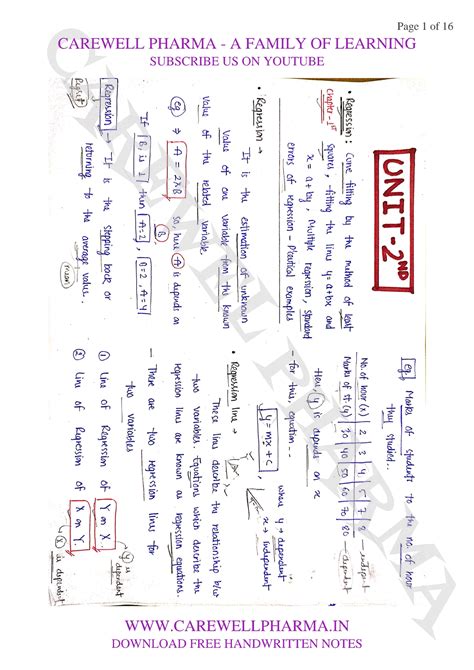 Page 1 of 16
CAREWELL PHARMA - A FAMILY OF LEARNING
SUBSCRIBE US ON YOUTUBE
CAREWELL PHARMA
UNIT-2ND
• Regression: Curve fitting by the method of least
Chapter-1st
squares, fitting the lines y=a+bx and
x = a+by, Multiple regression, standard
errors of regression - Practical examples
• Regression →
It is the estimation of unknown
value of one variable from the known
value of the related variable.
eg ⇒ A = 2×B so, here A is depends on B
If B is 1 then A=2, B=2, A=4
Regression → It is the stepping back or
returning to the average value.
(mean)
eg. Marks of students to the no. of hour
they studied.
No. of hour (x) 2 3 4 5 7 8
Marks of st. (y) 20 40 50 60 70 80
- dependent
Here, y is depends on x
- for this, equation --
y = mx + c, where y → dependent
x → independent
• Regression line →
These lines describe the relationship b/w
two variables. Equations which describe the
regression lines are known as regression equations.
- There are two regression lines for
two variables
① Line of Regression of Y on X. (y) is dependent
② Line of Regression of X on Y. (x) is dependent
WWW.CAREWELLPHARMA.IN
DOWNLOAD FREE HANDWRITTEN NOTES